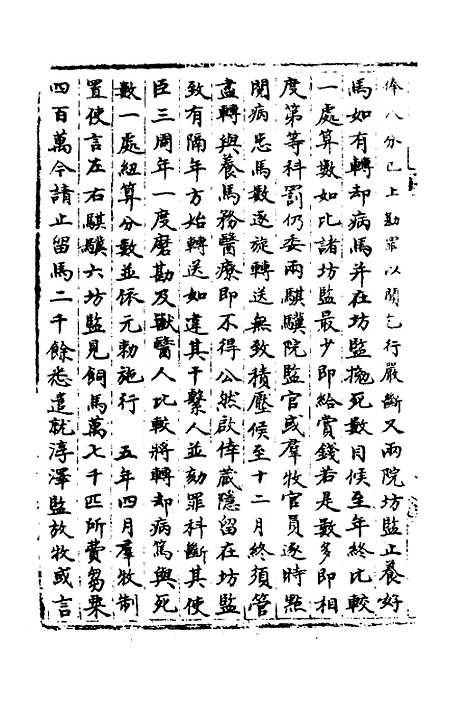 俸八分已上勘罪以聞乞行嚴斷又兩院坊監止養好
馬如有轉却病馬并在坊監拋死數目候至年終比較
一處算數如比諸坊監最少即給賞錢若是數多即相
度第等科罰仍委兩騏驥院監官或羣牧官員逐時點
閱病患馬數逐旋轉送無致積壓候至十二月終須管
盡轉與養馬務醫療即不得公然啟倖藏隱留在坊監
致有隔年方始轉送如違其干繫人並劾罪科斷其使
臣三周年一度磨勘及獸醫人比較將轉却病篤與死
數一處紐算分數並依元勅施行　五年四月羣牧制
置使言左右騏驥六坊監見飼馬萬七千匹所費芻粟
四百萬今請止留馬二千餘悉遣就淳澤監放牧或言